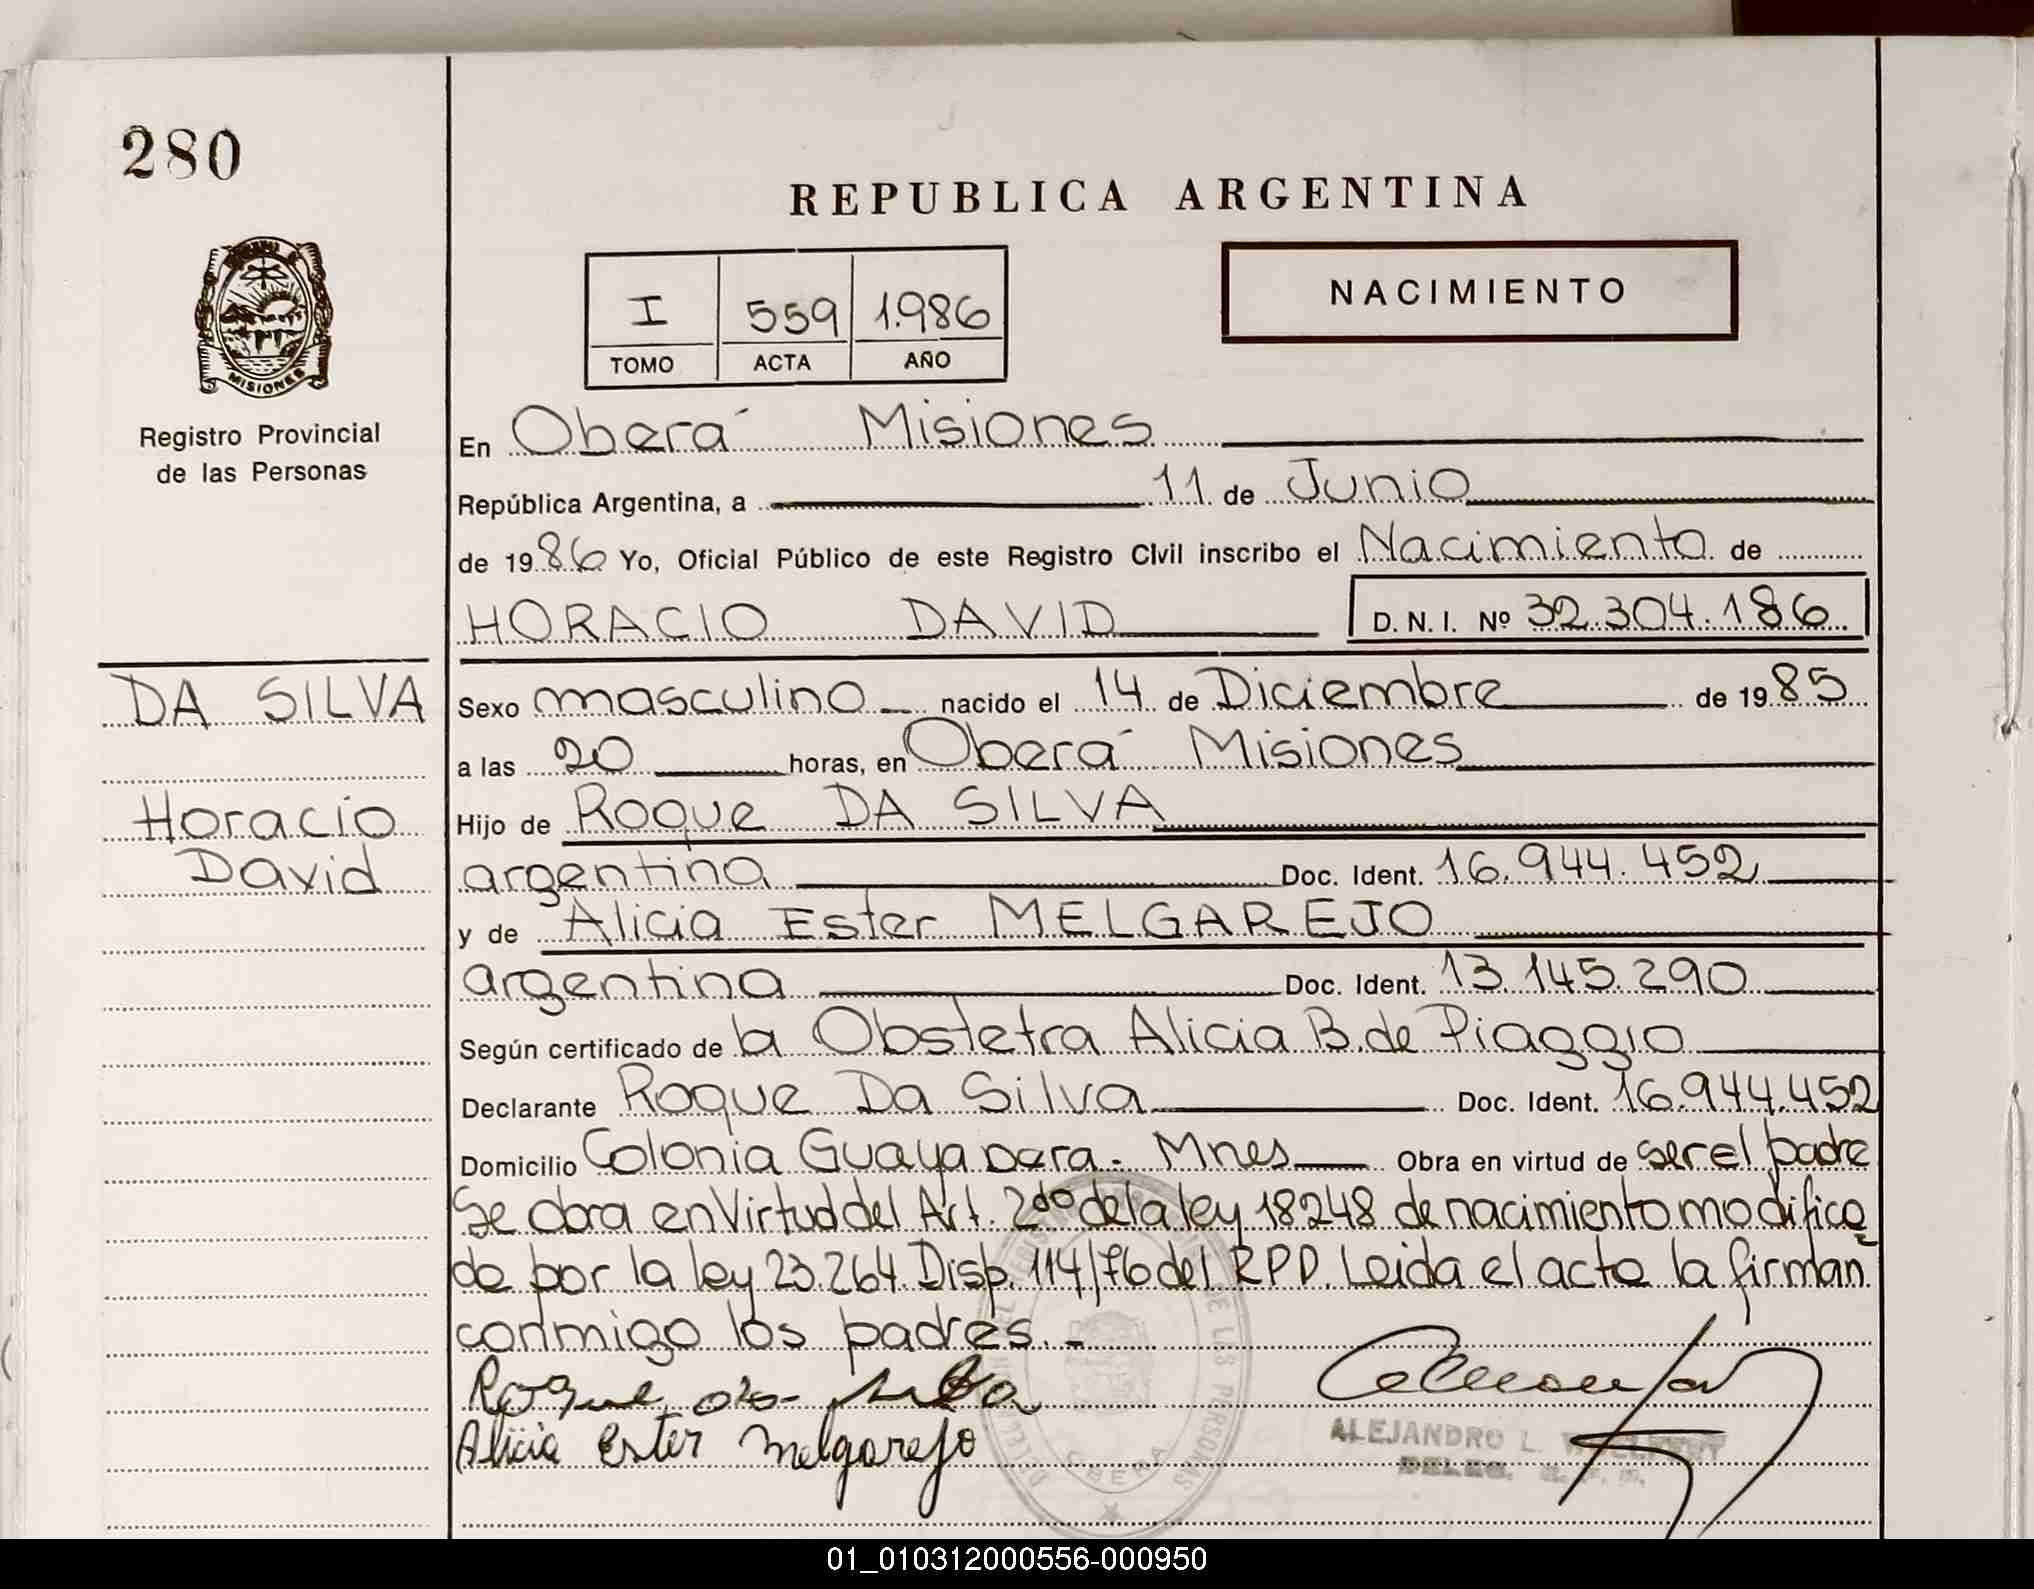 280
REPUBLICA ARGENTINA
I 559 1.986
TOMO ACTA AÑO
NACIMIENTO
MISIONES
Registro Provincial
de las Personas
En Oberá Misiones
República Argentina, a 11 de Junio
de 1986 Yo, Oficial Público de este Registro Civil inscribo el Nacimiento de
HORACIO DAVID D. N. I. Nº 32.304.186
DA SILVA
Horacio
David
Sexo masculino nacido el 14 de Diciembre de 1985
a las 20 horas, en Oberá Misiones
Hijo de Roque DA SILVA
argentina Doc. Ident. 16.944.452
y de Alicia Ester MELGAREJO
argentina Doc. Ident. 13.145.290
Según certificado de la Obstetra Alicia B. de Piaggio
Declarante Roque Da Silva Doc. Ident. 16.944.452
Domicilio Colonia Guayabera - Mnes Obra en virtud de ser el padre
Se obra en Virtud del Art. 2do de la ley 18248 de nacimiento modifica
do por la ley 23.264. Disp. 114/76 del RPP. Leida el acta la firman
conmigo los padres. -
Roque da Silva
Alicia Ester Melgarejo
ALEJANDRO L.
DE LAS PERSONAS
OBERA
01_010312000556-000950